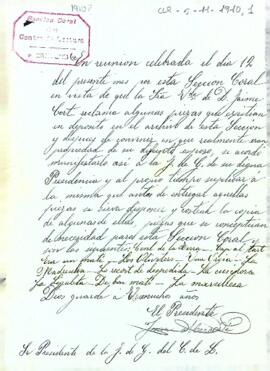 1910?
CLR-5-11-1910,1
Sección Coral
del
Centro de Lectura
En reunion celebrada el dia 12
del presente mes en esta Seccion Coral
en vista de que la Sra Vda de D. Jaime
Cort reclama algunas piezas que existian
en deposito en el archivo de esta Seccion
y despues de convenir en que realmente son
propiedad de su difunto esposo, se acordó
manifestarlo asi á la J. de G. de su digna
Presidencia y al propio tiempo suplicar á
la misma que antes de entregar aquellas
piezas se sirva disponer y costear la copia
de algunas de ellas, piezas que se conceptuan
de necesidad para esta Seccion Coral y
son las siguientes:
La Maquinista La de despedida
La maravillosa
Dios guarde á V. muchos años
El Presidente
Sr Presidente de la J. de G. del C. de L.